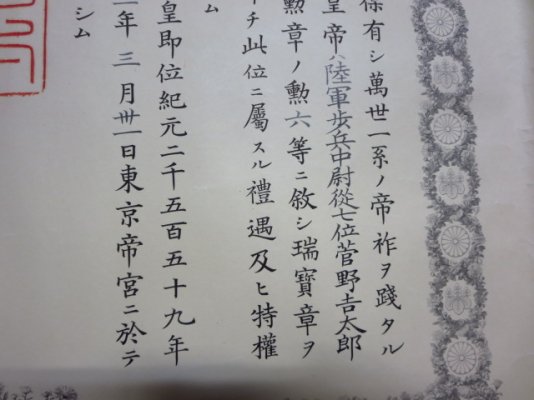 保有シ萬世一系ノ帝祚ヲ踐タル
皇帝ハ陸軍歩兵中尉從七位菅野吉太郎
勲章ノ勲六等ニ敘シ瑞寶章ヲ
チ此位ニ屬スル禮遇及ヒ特權
ム
皇即位紀元二千五百五十九年
年三月卅一日東京帝宮ニ於テ
シム